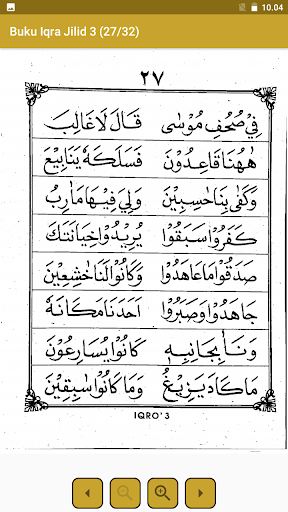 10.04
Buku Iqra Jilid 3 (27/32)
٢٧
فِيْ صُحُفِ مُوْسٰى قَالَ لَا غَالِبَ
هٰهُنَا قَاعِدُوْنَ فَسَلَكَهٗ يَنَابِيْعَ
وَكَفٰى بِنَا حَاسِبِيْنَ وَلِيَ فِيْهَا مَاٰرِبُ
كَفَرُوْا سَبَقُوْا يُرِيْدُوْا خِيَانَتَكَ
صَدَقُوْا مَا عَاهَدُوْا وَكَانُوْا لَنَا خٰشِعِيْنَ
جَاهَدُوْا وَصَبَرُوْا اَحَدَنَا مَكَانَهٗ
وَنَاٰ بِجَانِبِهٖ كَانُوْا يُسَارِعُوْنَ
مَا كَادَ يَزِيْغُ وَمَا كَانُوْا سٰبِقِيْنَ
IQRO' 3